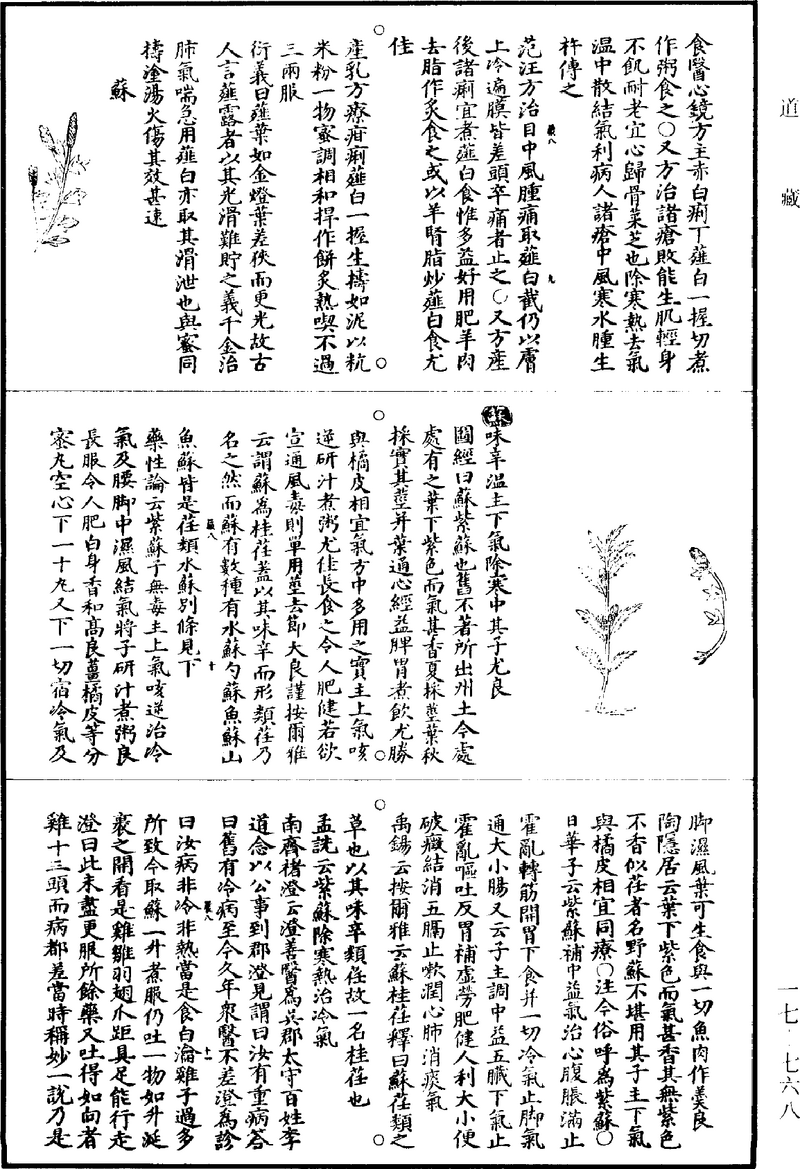 道藏
食醫心鏡方主赤白痢下薤白一握切煮
作粥食之○又方治諸瘡敗能生肌輕身
不飢耐老宜心歸骨菜芝也除寒熱去氣
溫中散結氣利病人諸瘡中風寒水腫生
杵傅之
范汪方治目中風腫痛取薤白截仍以膚
上冷遍膜皆差頭卒痛者止之○又方產
後諸痢宜煮薤白食惟多益好用肥羊肉
去脂作炙食之或以羊腎脂炒薤白食尤
佳
產乳方療疳痢薤白一握生擣如泥以秔
米粉一物蜜調相和捍作餅炙熱喫不過
三兩服
衍義曰薤葉如金燈葉差狹而更光故古
人言薤露者以其光滑難貯之義千金治
肺氣喘急用薤白亦取其滑泄也與蜜同
擣塗湯火傷其效甚速
蘇
味辛溫主下氣除寒中其子尤良
圖經曰蘇紫蘇也舊不著所出州土今處
處有之葉下紫色而氣甚香夏採莖葉秋
採實其莖并葉通心經益脾胃煮飲尤勝
與橘皮相宜氣方中多用之實主上氣咳
逆研汁煮粥尤佳長食之令人肥健若欲
宣通風毒則單用莖去節大良謹按爾雅
云謂蘇為桂荏蓋以其味辛而形類荏乃
名之然而蘇有數種有水蘇勺蘇魚蘇山
魚蘇皆是荏類水蘇別條見下
藥性論云紫蘇子無毒主上氣咳逆治冷
氣及腰脚中濕風結氣將子研汁煮粥良
長服令人肥白身香和高良薑橘皮等分
蜜丸空心下一十丸又下一切宿冷氣及
脚濕風葉可生食與一切魚肉作羹良
陶隱居云葉下紫色而氣甚香其無紫色
不香似荏者名野蘇不堪用其子主下氣
與橘皮相宜同療○注今俗呼為紫蘇○
日華子云紫蘇補中益氣治心腹脹滿止
霍亂轉筋開胃下食并一切冷氣止脚氣
通大小腸又云子主調中益五臟下氣止
霍亂嘔吐反胃補虛勞肥健人利大小便
破癥結消五膈止嗽潤心肺消痰氣
禹錫云按爾雅云蘇桂荏釋曰蘇荏類之
草也以其味辛類荏故一名桂荏也
孟詵云紫蘇除寒熱治冷氣
南齊褚澄云澄善醫為吳郡太守百姓李
道念以公事到郡澄見謂曰汝有重病答
曰舊有冷病至今久年眾醫不差澄為診
曰汝病非冷非熱當是食白瀹雞子過多
所致令取蘇一升煮服仍吐一物如升涎
裹之開看是雞雛羽翅爪距具足能行走
澄曰此未盡更服所餘藥又吐得如向者
雞十三頭而病都差當時稱妙一說乃是
一七·七六八